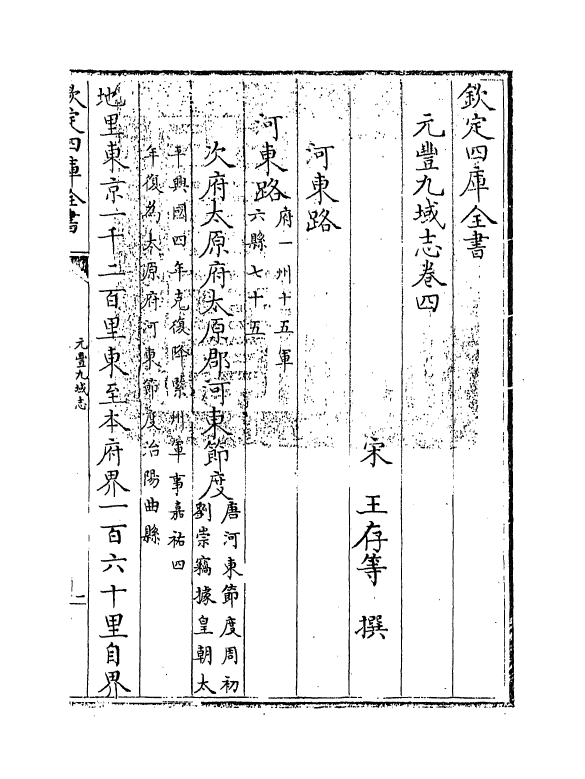 欽定四庫全書
元豐九域志卷四
宋 王存等 撰
河東路
河東路
府一州十五軍
六縣七十五
次府太原府太原郡河東節度
唐河東節度周初
劉崇竊據皇朝太
平興國四年克復降緊州軍事嘉祐四
年復為太原府河東節度治陽曲縣
地里東京一千二百里東至本府界一百六十里自界
欽定四庫全書
元豐九域志